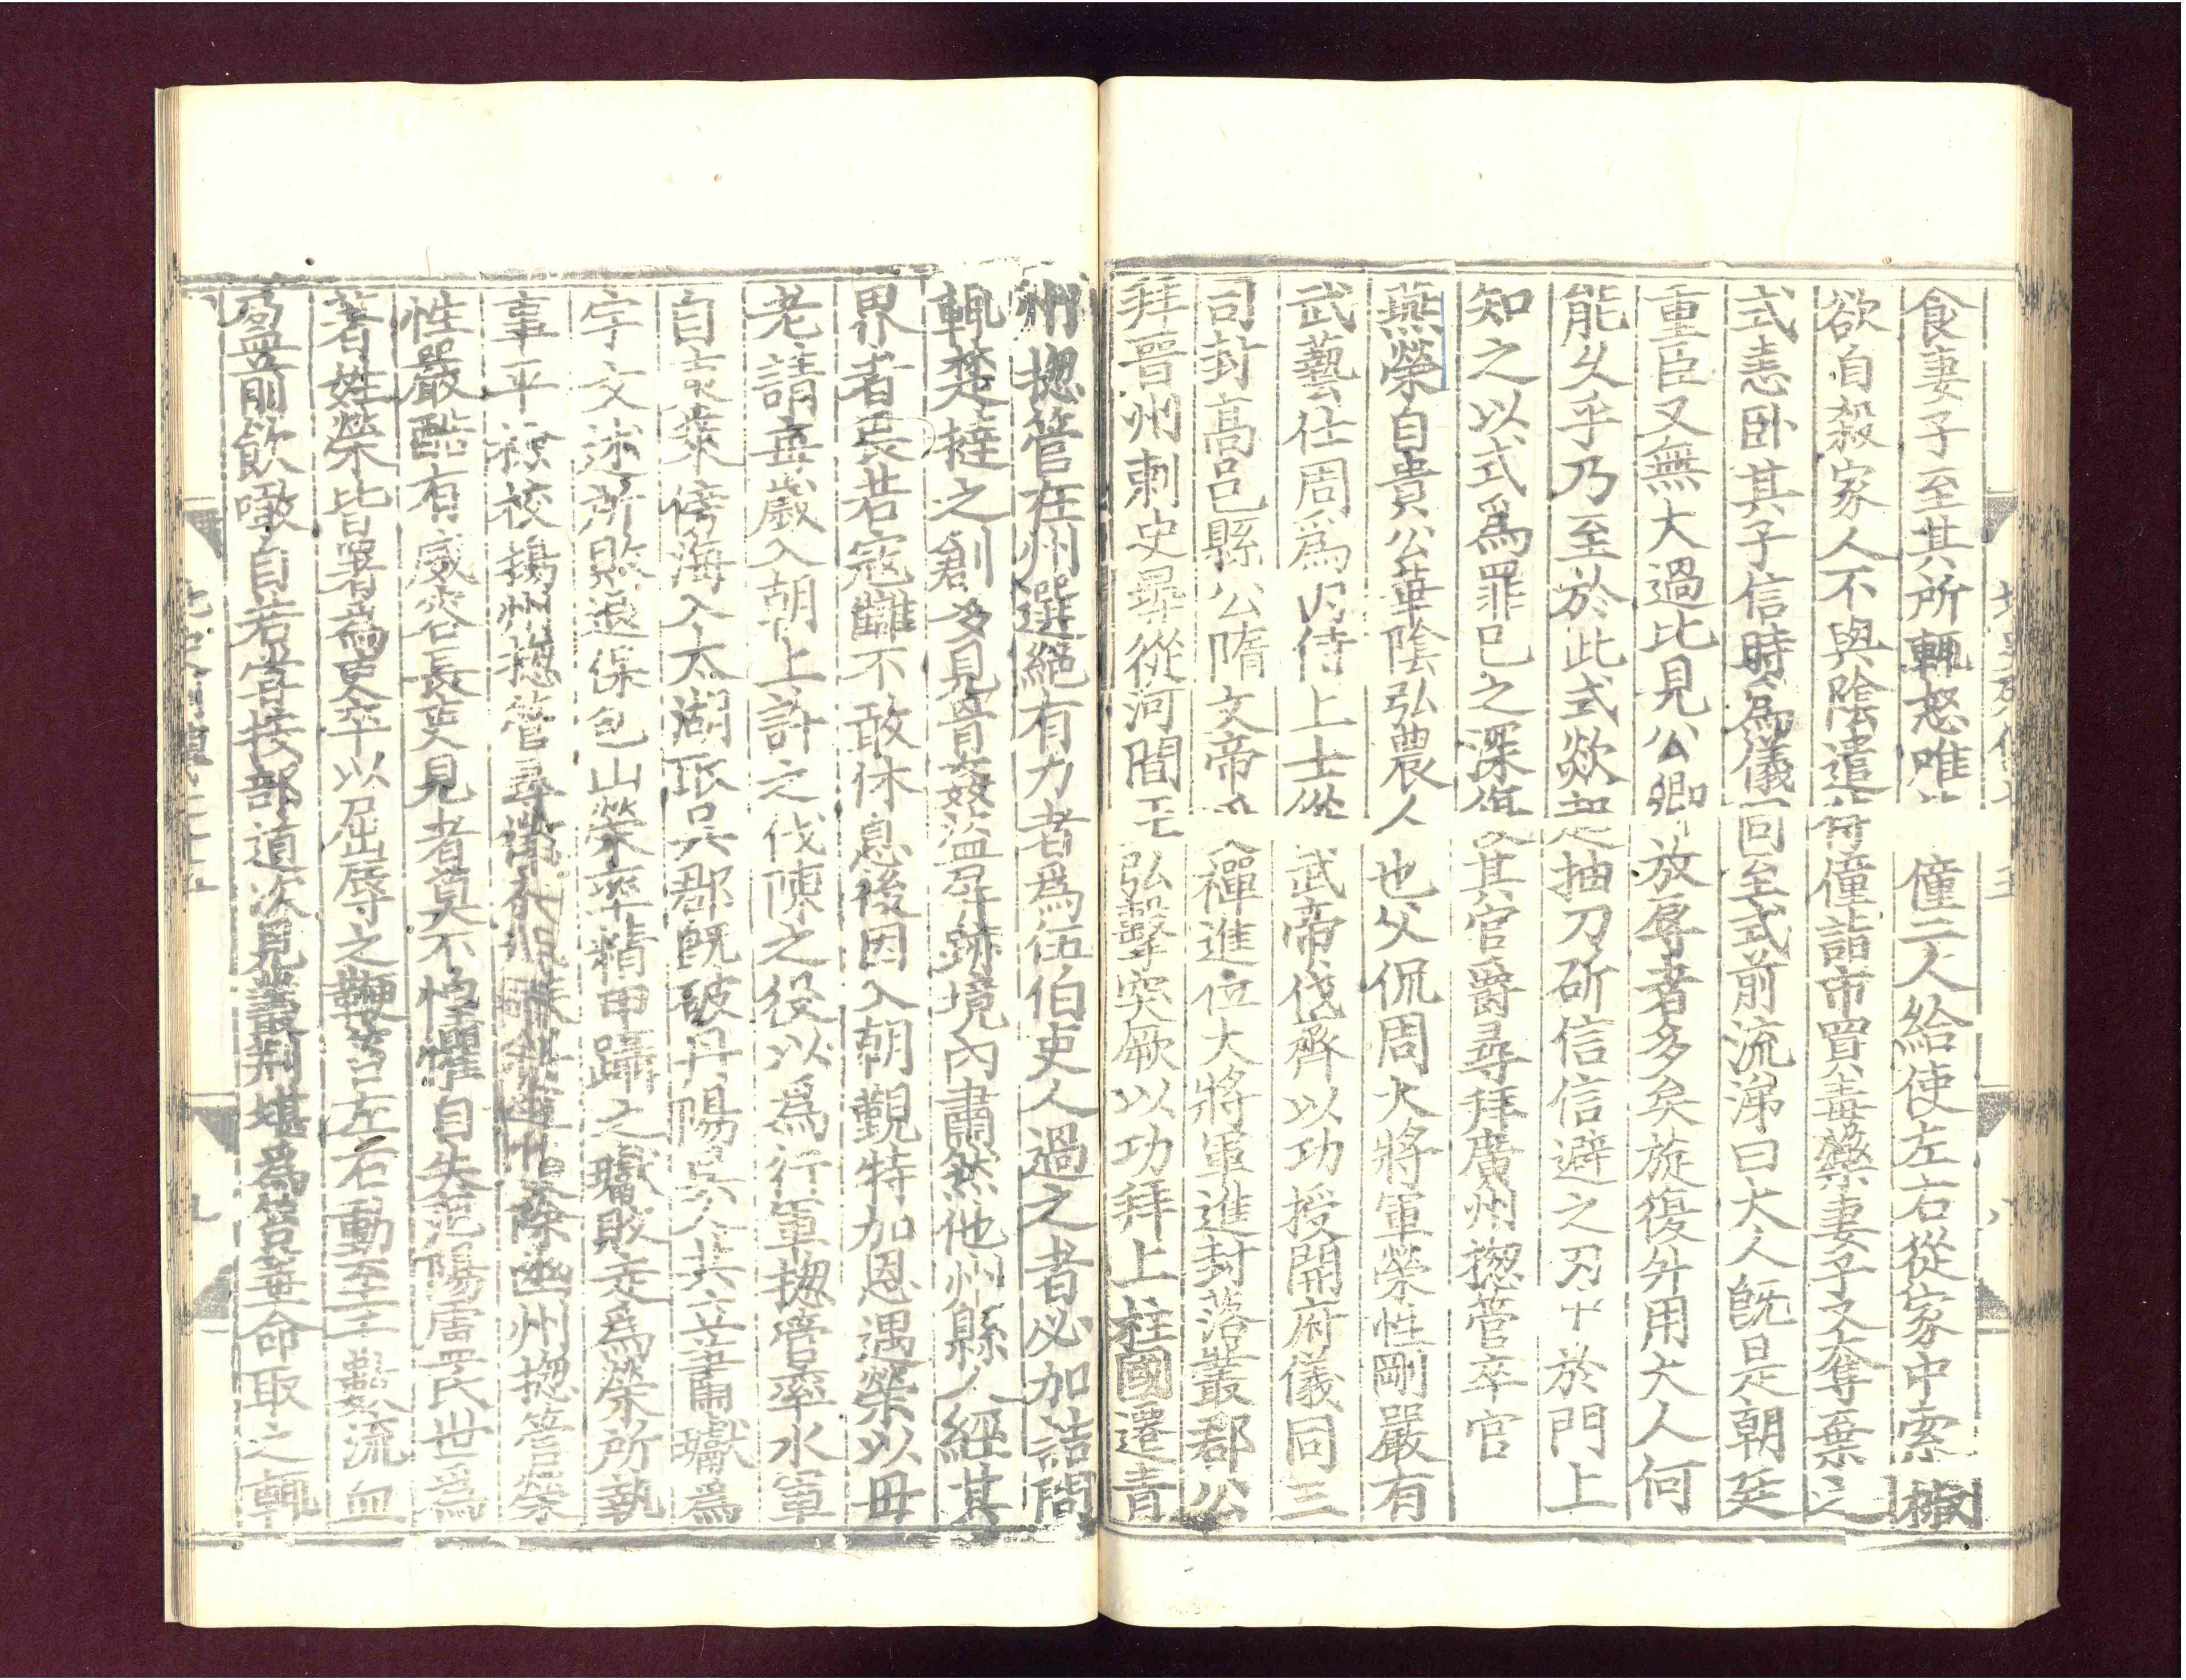 食妻子至其所輒怒唯 僮二人給使左右從家中索椒
欲自殺家人不與陰遣 僮詣市買毒藥妻子又奪棄之
式恚卧其子信時爲儀同至式前流涕曰大人既是朝廷
重臣又無大過比見公卿放辱者多矣旋復升用大人何
能久乎乃至於此式欻起抽刀斫信信避之刃 於門上
知之以式爲罪已之深復其官爵尋拜廣州揔管卒官
燕榮自貴公華陰弘農人也父侃周大將軍榮性剛嚴有
武藝仕周爲内侍上士從武帝伐齊以功授開府儀同三
司封髙邑縣公隋文帝 禪進位大將軍進封落叢郡公
拜晉州刺史尋從河間王弘擊突厥以功拜上柱國遷青
州揔管在州選絕有力者爲伍伯吏人過之者必加詰問
輒楚撻之創多見骨姦盜屏跡境内肅然他州縣人經其
界者畏若寇讎不敢休息後因入朝覲特加恩遇榮以毋
老請每歲入朝上許之伐陳之役以爲行軍揔管率水軍
自 萊傍海入太湖取吳郡既破丹陽吳人共立蕭瓛爲
宇文述所敗退保包山榮率精甲躡之瓛敗走爲榮所執
事平 校揚州揔管尋 幽州揔管榮
性嚴酷有威容長吏見者莫不惶懼自失范陽盧氏世爲
著姓榮皆署爲吏卒以屈辱之鞭笞左右動至千數流血
盈前飲噉自若嘗按部道次見叢荆堪爲笞箠命取之輒